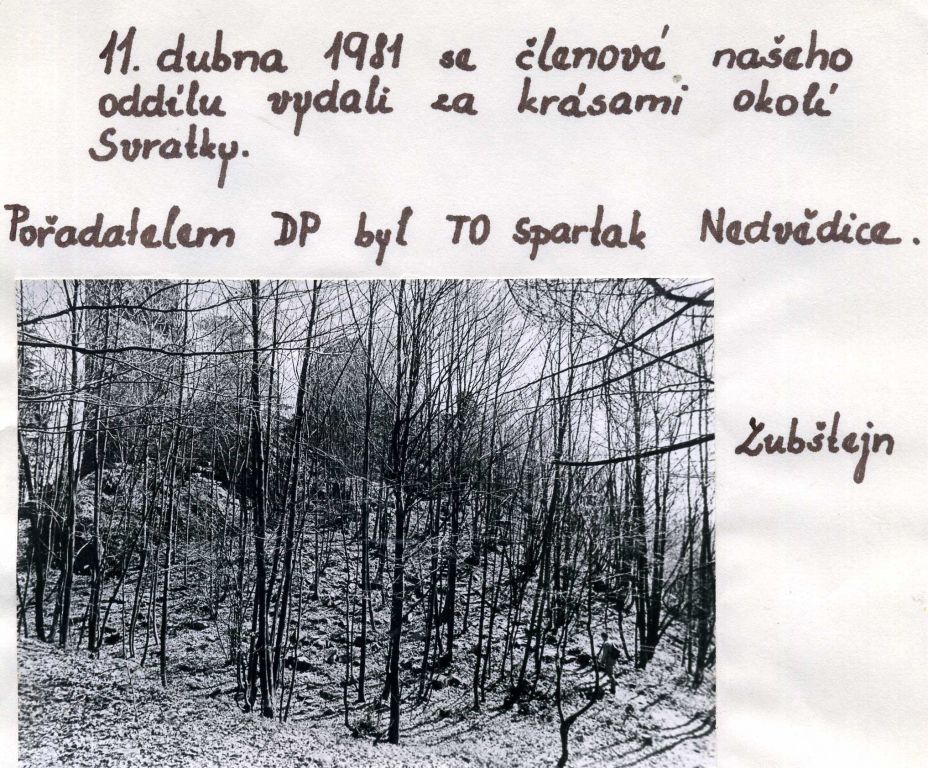 11. dubna 1981 se členové našeho
oddílu vydali za krásami okolí
Svratky.
Pořadatelem DP byl TO Spartak Nedvědice.
Zubštejn